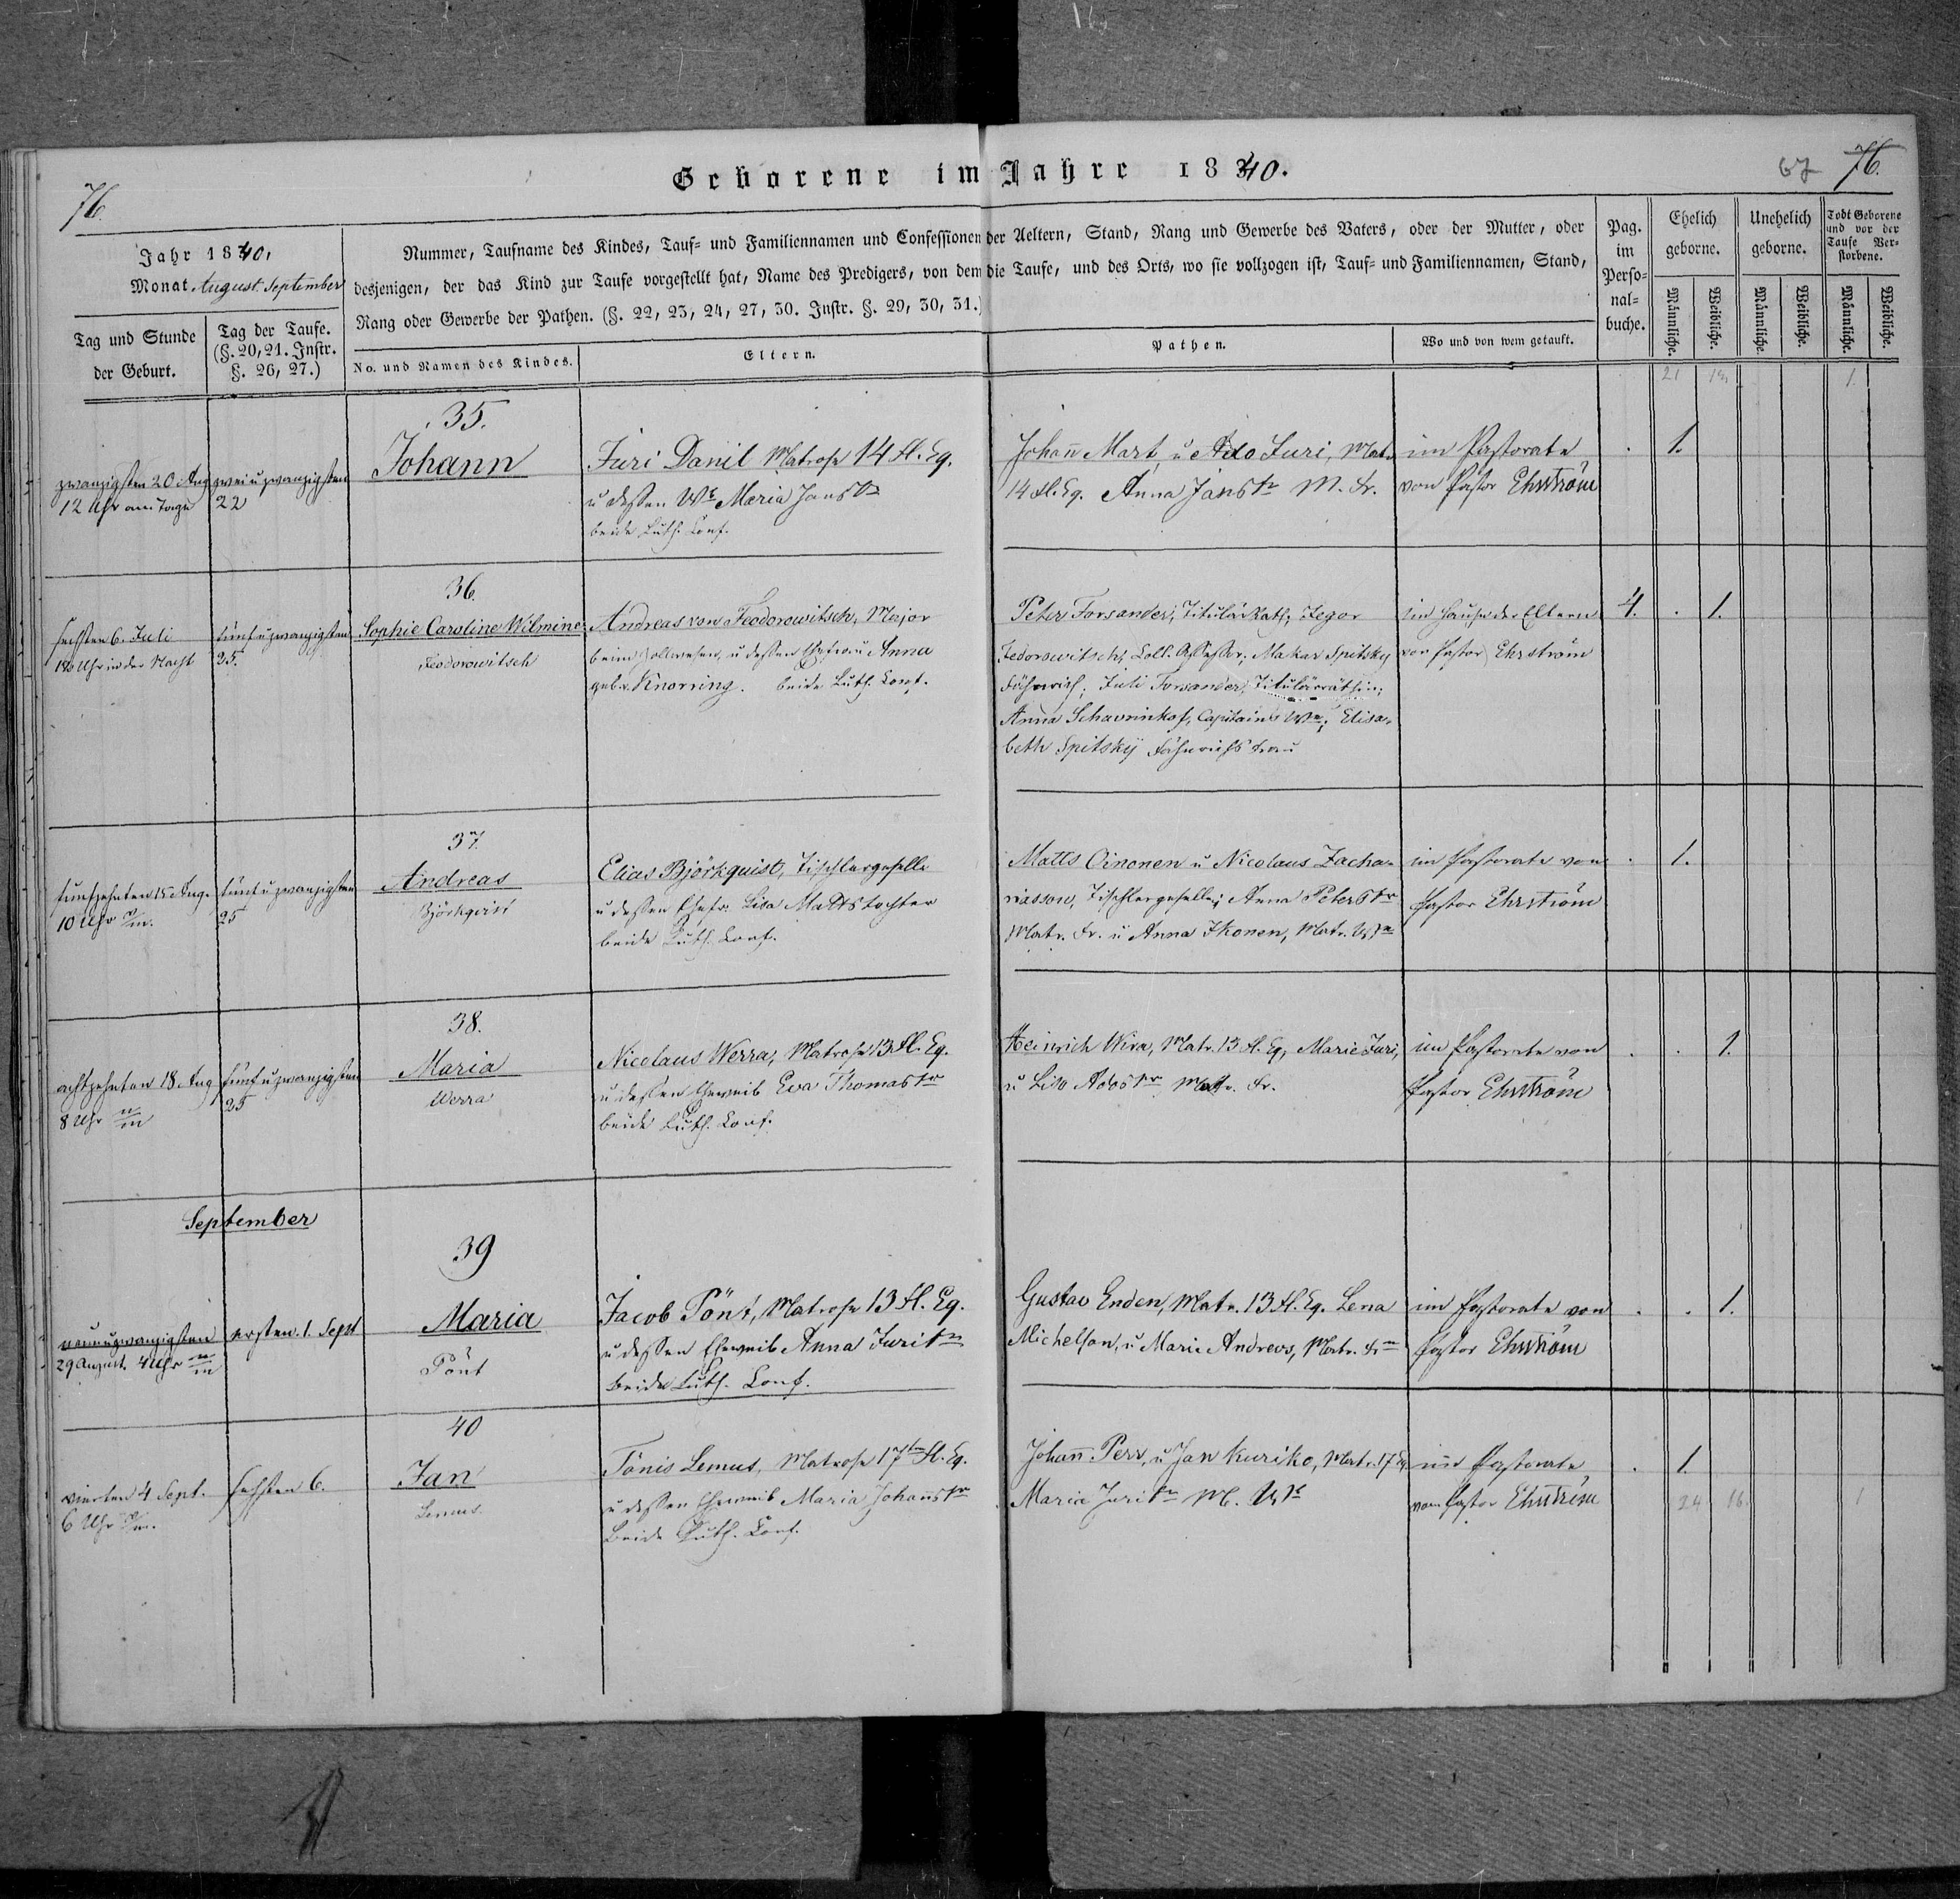 Geborene im Jahre 1840.
76.
67 76.
Jahr 1840,
Monat August. September
Tag und Stunde der Geburt.
Tag der Taufe. (§. 20, 21. Instr. §. 26, 27.)
Nummer, Taufname des Kindes, Tauf- und Familiennamen und Confessionen der Aeltern, Stand, Rang und Gewerbe des Vaters, oder der Mutter, oder
desjenigen, der das Kind zur Taufe vorgestellt hat, Name des Predigers, von dem die Taufe, und des Orts, wo sie vollzogen ist, Tauf- und Familiennamen, Stand,
Rang oder Gewerbe der Pathen. (§. 22, 23, 24, 27, 30. Instr. §. 29, 30, 31.)
No. und Namen des Kindes.
Eltern.
Pathen.
Wo und von wem getauft.
Pag. im Perso- nal- buche.
Ehelich geborne.
Unehelich geborne.
Todt Geborene und vor der Taufe Ver- storbene.
Männliche.
Weibliche.
Männliche.
Weibliche.
Männliche.
Weibliche.
21
1
35.
zwanzigsten 20 Aug
12 Uhr am Tage
zwei u zwanzigsten
22
Johann
Juri Danil Matrose 14 Fl. Eq.
u dessen Wb Maria Jans tr
beide Luth. Conf.
Johan̄ Mart, u Ado Juri, Mat.
14 Fl. Eq. Anna Jans tr M. Fr.
im Pastorate
von Pastor Ehrström
1.
36.
sechsten 6. Juli
Uhr in der Nacht
fünf u zwanzigsten
25.
Sophie Caroline Wilmine
Feodorowitsch
Andreas von Feodorowitsch, Major
beim Zollwesen, u dessen Ehefrau Anna
geb. v. Knorring. beide Luth. Conf.
Peter Forsander, Titulär Rath; Jegor
Fedorowitsch, Coll. Assessor; Makar Spitsky
Fähnrich; Juli Forsander, Titulärräthin;
Anna Schavrinkof, Capitains We; Elisa-
beth Spitskij Fähnrichs Frau
im Hause der Eltern
von Pastor Ehrström
4.
1.
37.
funfzehnten 15 Aug.
10 Uhr V/m.
fünf u zwanzigsten
25
Andreas
Björkqvist
Elias Björkquist, Tischlergeselle
u dessen Ehefr. Lisa Matts tochter
beide Luth. Conf.
Matts Oinonen u Nicolaus Zacha-
riasson, Tischlergeselle; Anna Peters tr
Matr. Fr. u Anna Ikonen, Matr. We
im Pastorate von
Pastor Ehrström
1.
38.
achtzehnten 18 Aug
8 Uhr n/m
fünf u zwanzigsten
25
Maria
Werra
Nicolaus Werra, Matrose 13 Fl. Eq.
u dessen Eheweib Eva Thomas tr
beide Luth. Conf.
Heinrich Wira, Matr. 13 Fl. Eq, Marie Juri,
u Liso Ados tr Matr. Fr.
im Pastorate von
Pastor Ehrström
1.
September
39
neunuzwanzigsten
29 August. 4 Uhr n/m
ersten. 1. Sept
Maria
Pönt
Jacob Pönt, Matrose 13 Fl. Eq.
u dessen Eheweib Anna Juri tr
beide Luth. Conf.
Gustav Enden, Matr. 13 Fl. Eq. Lena
Michelson, u Marie Andrews, Matr. Frn
im Pastorate von
Pastor Ehrström
1.
40
vierten 4 Sept.
6 Uhr V/m.
sechsten 6.
Jan
Lemus
Tönis Lemus, Matrose 17ten Fl. Eq.
u dessen Eheweib Maria Johans tr
beide Luth. Conf.
Johan̄ Perr, u Jan Kuriko, Matr. 17 Eq
Maria Juri tr M. Wb
im Pastorate
vom Pastor Ehrström
1.
24 16. 1